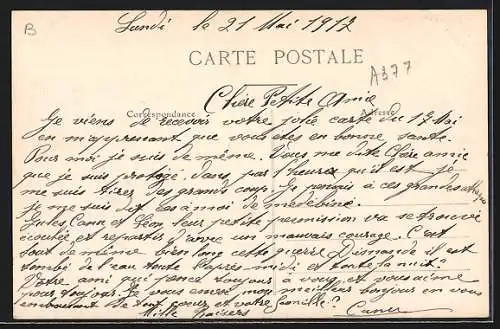 B
Lundi le 21 Mai 1917
CARTE POSTALE
A377
Chère Petite Amie
Correspondance
Adresse
Je viens de recevoir votre jolie carte du 17 Mai
en m'apprenant que vous etes en bonne sante.
Pour moi je suis de même. Vous me dite Chère amie
que je suis protégé. Dans, par l'heure qu'il est je
me suis tirer des grands coup. Je pensais à ces grandes
je me suis et ces à moi de
Jules Cann et Léon leur petite permission va se trouvé
écoutée et repartir avec un mauvais courage. C'est
tout de même bien long cette guerre. Dimanche il est
tombé de l'eau toute l'après midi et toute la nuit.
Votre ami qui pense toujours à vous et vous aime
pour toujours. Je vous envoi mon meilleurs bonjour en vous
embrassant de tout coeur et votre famille.
Mille Baisers